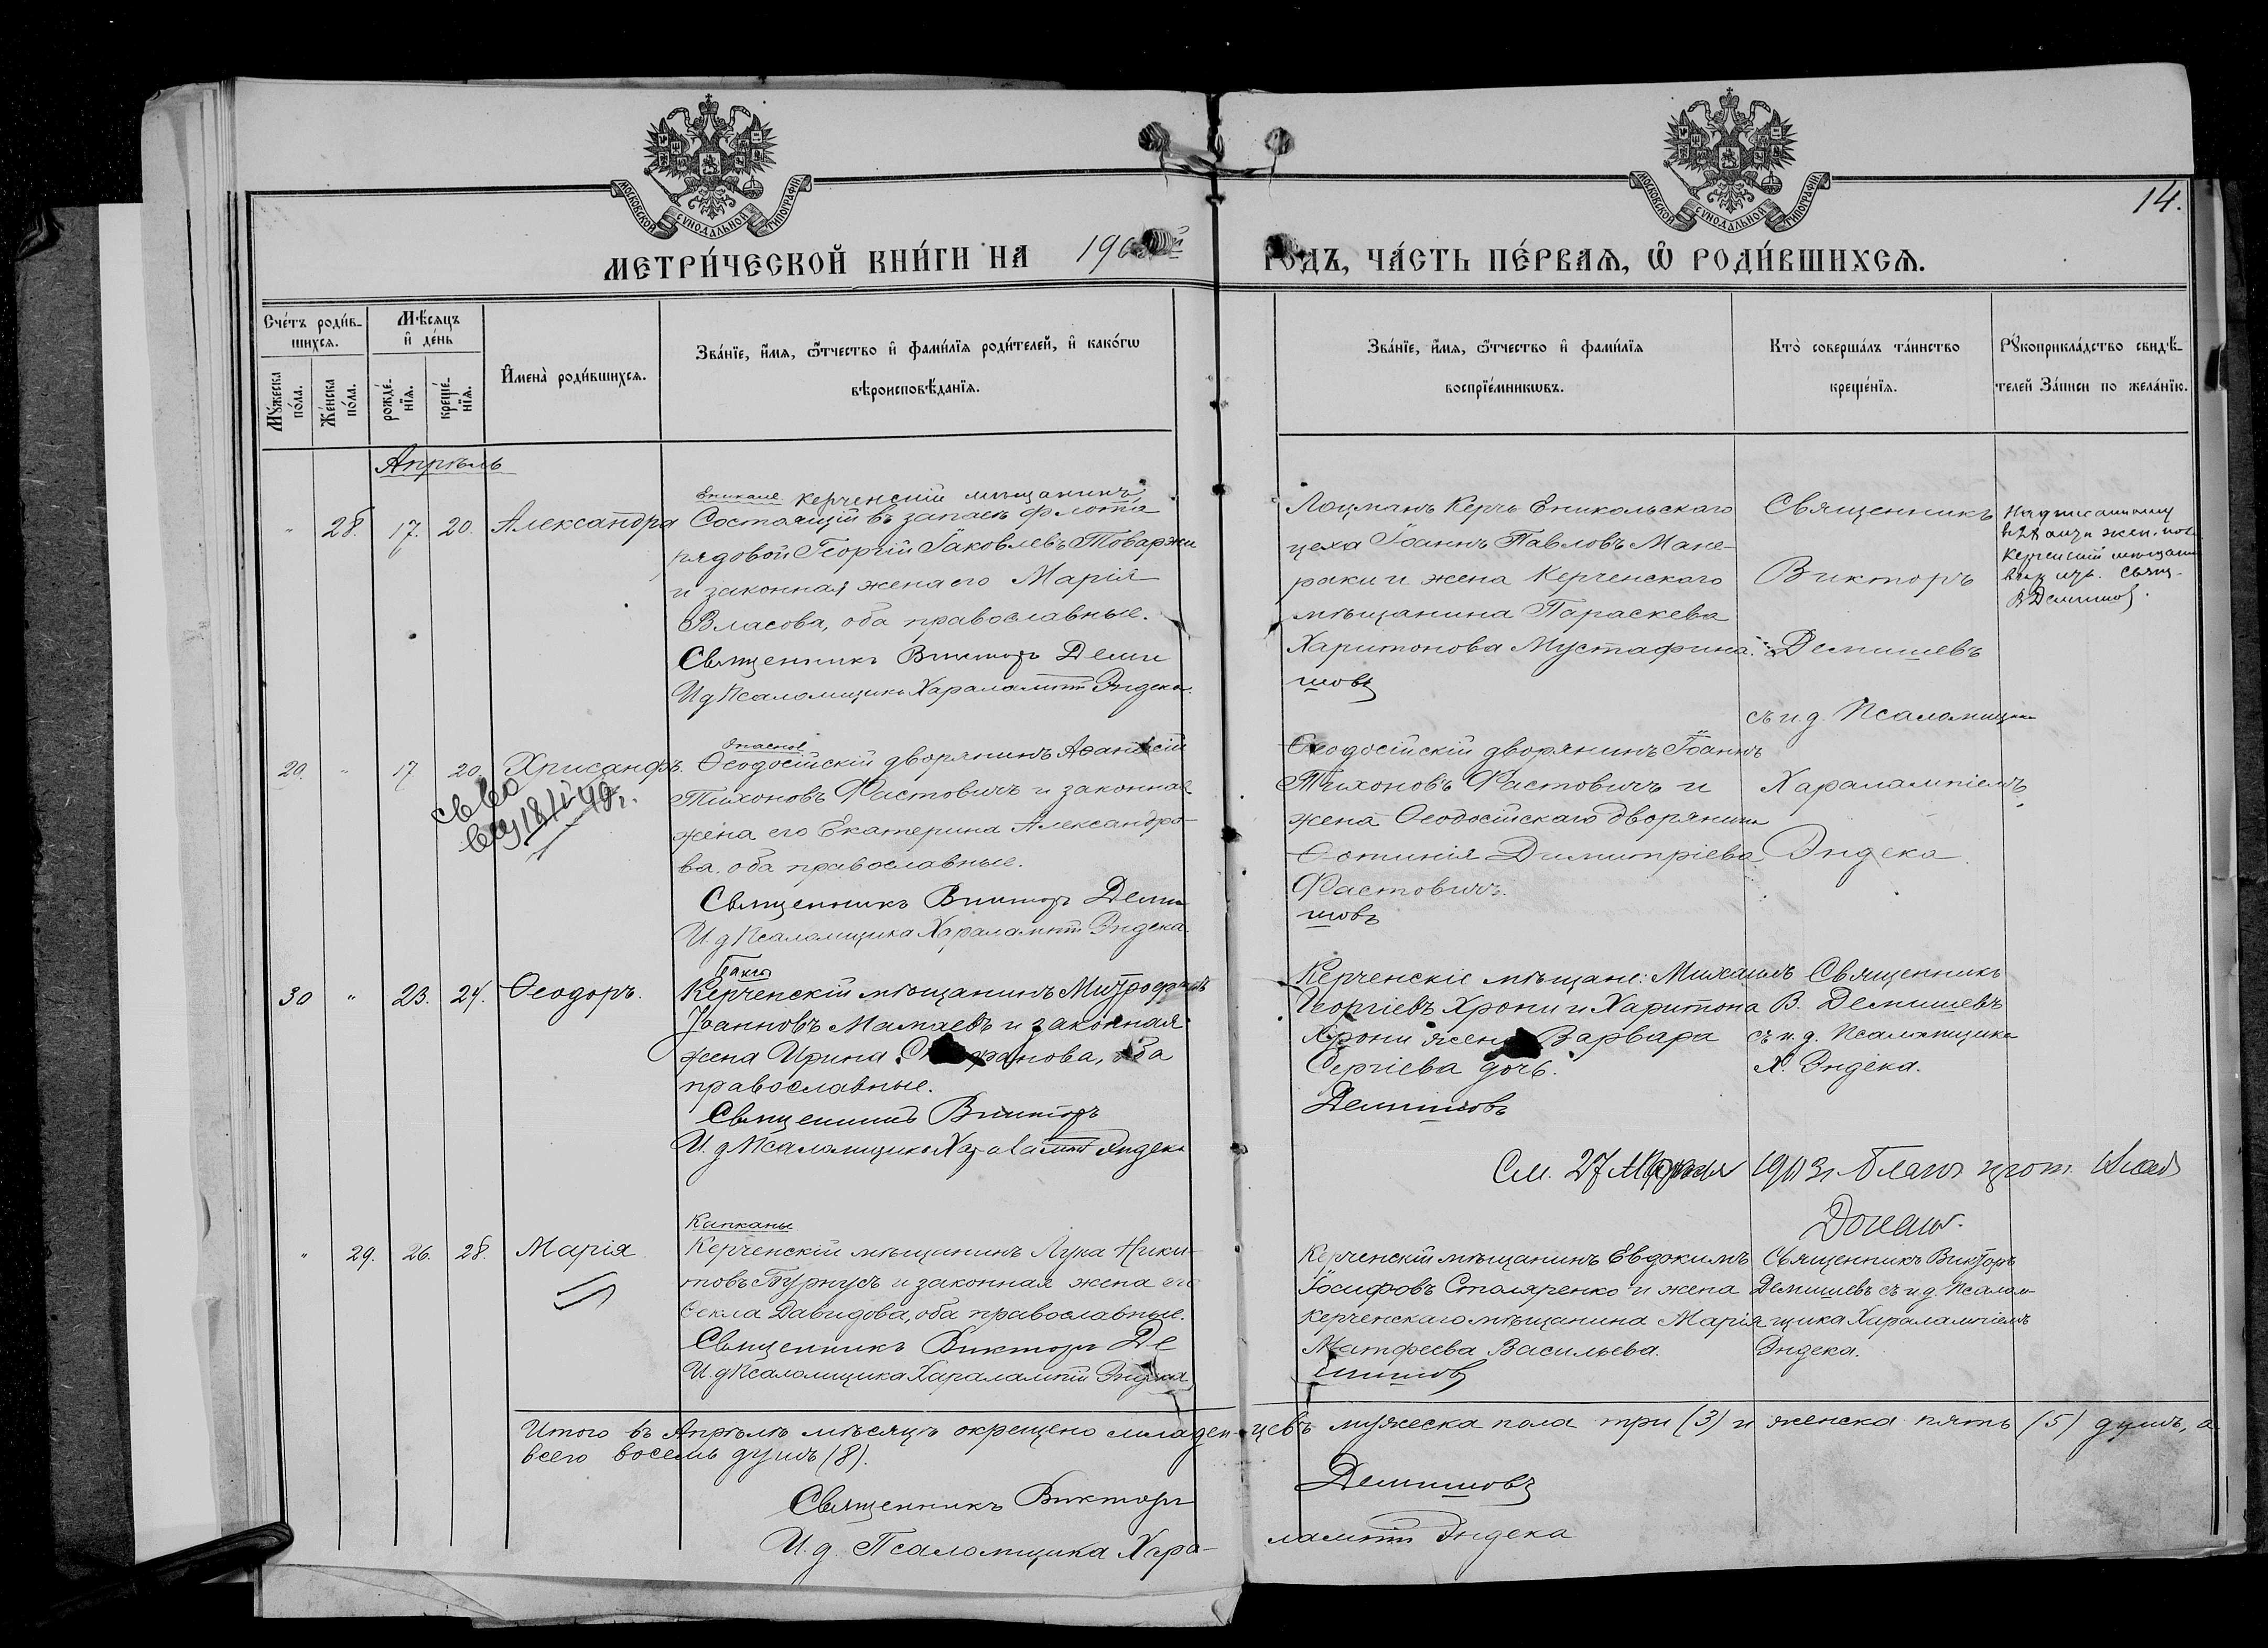 МОСКОВСКОЙ СѴНОДАЛЬНОЙ ТИПОГРАФІИ
МОСКОВСКОЙ СѴНОДАЛЬНОЙ ТИПОГРАФІИ
14.
МЕТРИ́ЧЕСКОЙ КНИ́ГИ НА
ГОДЪ, ЧА́СТЬ ПЕ́РВАѦ, Ѡ҆ РОДИ́ВШИХСѦ.
Сче́тъ роди́в-
шихсѧ.
Мѣ́сѧцъ
и҆ де́нь
Мꙋ́жеска
по́ла.
Же́нска
по́ла.
рожде́-
нїѧ.
креще́-
нїѧ.
И҆мена̀ роди́вшихсѧ.
Зва́нїе, и҆́мѧ, ѻ҆́тчество и҆ фами́лїѧ роди́телей, и҆ како́гѡ
вѣроисповѣ́данїѧ.
Зва́нїе, и҆́мѧ, ѻ҆́тчество и҆ фами́лїѧ
воспрїе́мникѡвъ.
Кто̀ соверша́лъ та́инство
креще́нїѧ.
Рꙋкоприкла́дство свидѣ́-
телей за́писи по жела́нїю.
Апрѣль
28. 17. 20. Александра
Еникале Керченскій мѣщанинъ
Состоящій въ запасѣ флота
рядовой Георгій Іаковлевъ
и законная жена его Марія
Власова, оба православные.
Священникъ Викторъ Деми
И д Псаломщика Харалампій Эндека.
Лоцманъ Керчь Еникольскаго
цеха Іоаннъ Павловъ Мане-
раки и жена Керченскаго
мѣщанина Параскева
Харитонова Мустафина.
шовъ
Священникъ
Викторъ
Демишевъ
съ и. д. Псаломщика
Харалампіемъ
Эндека.
Надписанному
Керченскій мѣщанин
Свящ.
В Демишов.
29. " 17 20. Хрисанфъ.
Ѳеодосійскій дворянинъ Аѳанасій
Тихоновъ Фастовичъ и законная
жена его Екатерина Александро-
ва, оба православные.
Священникъ Викторъ Деми
И. д Псаломщика Харалампій Эндека.
Ѳеодосійскій дворянинъ Іоаннъ
Тихоновъ Фастовичъ и
жена Ѳеодосійскаго дворянина
Ѳотинія Димитріева
Фастовичъ.
шовъ
30 " 23. 24. Ѳеодоръ.
Керченскій мѣщанинъ Митрофанъ
Іоанновъ Мамаевъ и законная
жена Ирина оба
православные.
Священникъ Викторъ
И. д Псаломщика Харалампій Эндека
Керченскіе мѣщане: Михаилъ
Георгіевъ Хрони и Харитона
Хрони жена Варвара
Сергіева дочь.
Демишовъ
Священникъ
В. Демишевъ
съ и. д. Псаломщика
Х. Эндека.
См. 27 1903 г.
" 29. 26. 28. Марія
Капканы
Керченскій мѣщанинъ Лука Ники-
товъ и законная жена его
Ѳекла Давидова, оба православные.
Священникъ Викторъ Де
И. д Псаломщика Харалампій Эндека
Керченскій мѣщанинъ Евдокимъ
Іосифовъ Столяренко и жена
Керченскаго мѣщанина Марія
Матфеева Васильева.
мишовъ
Священникъ Викторъ
Демишевъ съ и д. Псалом-
щика Харалампіемъ
Эндека.
Итого въ Апрѣлѣ мѣсяцѣ окрещено младен-цевъ мужеска пола три (3) и женска пять (5) душъ, а
всего восемь душъ (8).
Священникъ Викторъ Демишовъ
И. д. Псаломщика Хара-лампій Эндека